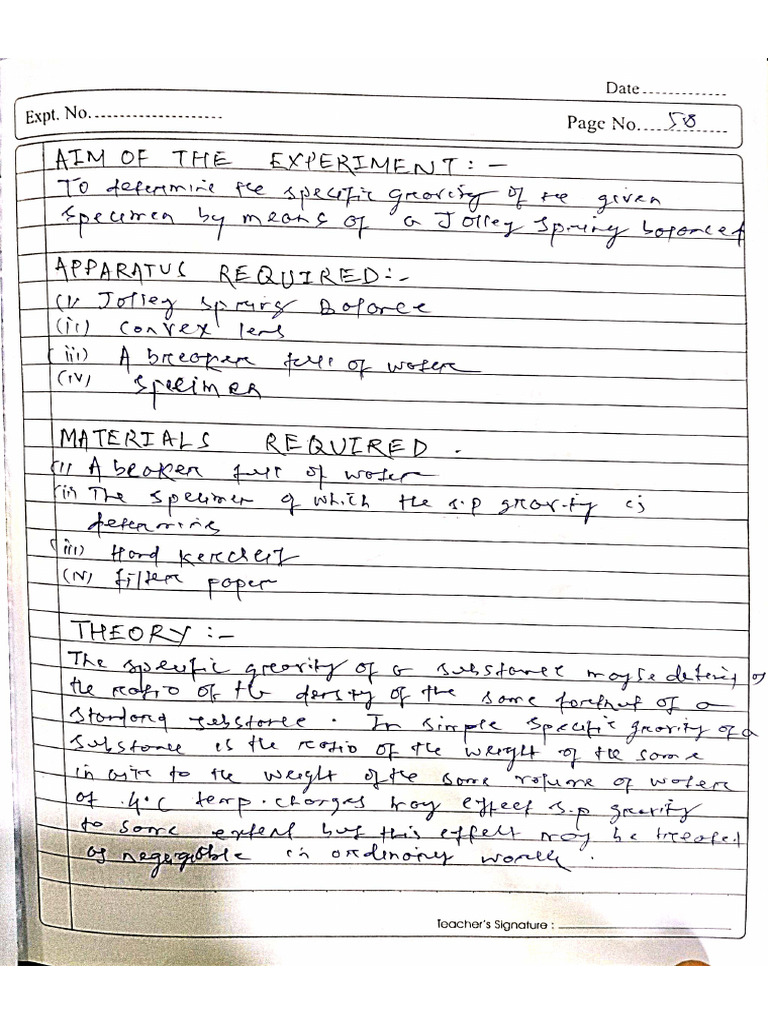 Date.............
Expt. No.......................
Page No....58............
AIM OF THE EXPERIMENT : -
To determine the specific gravity of the given
specimen by means of a Jolley spring balance
APPARATUS REQUIRED:-
(i) Jolley spring Balance
(ii) convex lens
(iii) A breaker full of water
(iv) specimen
MATERIALS REQUIRED .
(i) A beaker full of water
(ii) The specimen of which the s.p gravity is
determine
(iii) Hand kerchief
(iv) filter paper
THEORY :-
The specific gravity of a substance may be
the ratio of the density of the same to that of a
standard substance . In simple specific gravity of a
substance is the ratio of the weight of the same
in air to the weight of the same volume of water
of 4°C temp. changes may effect s.p gravity
to some extent but this effect may be treated
as neglegible in ordinary work .
Teacher's Signature : ______________